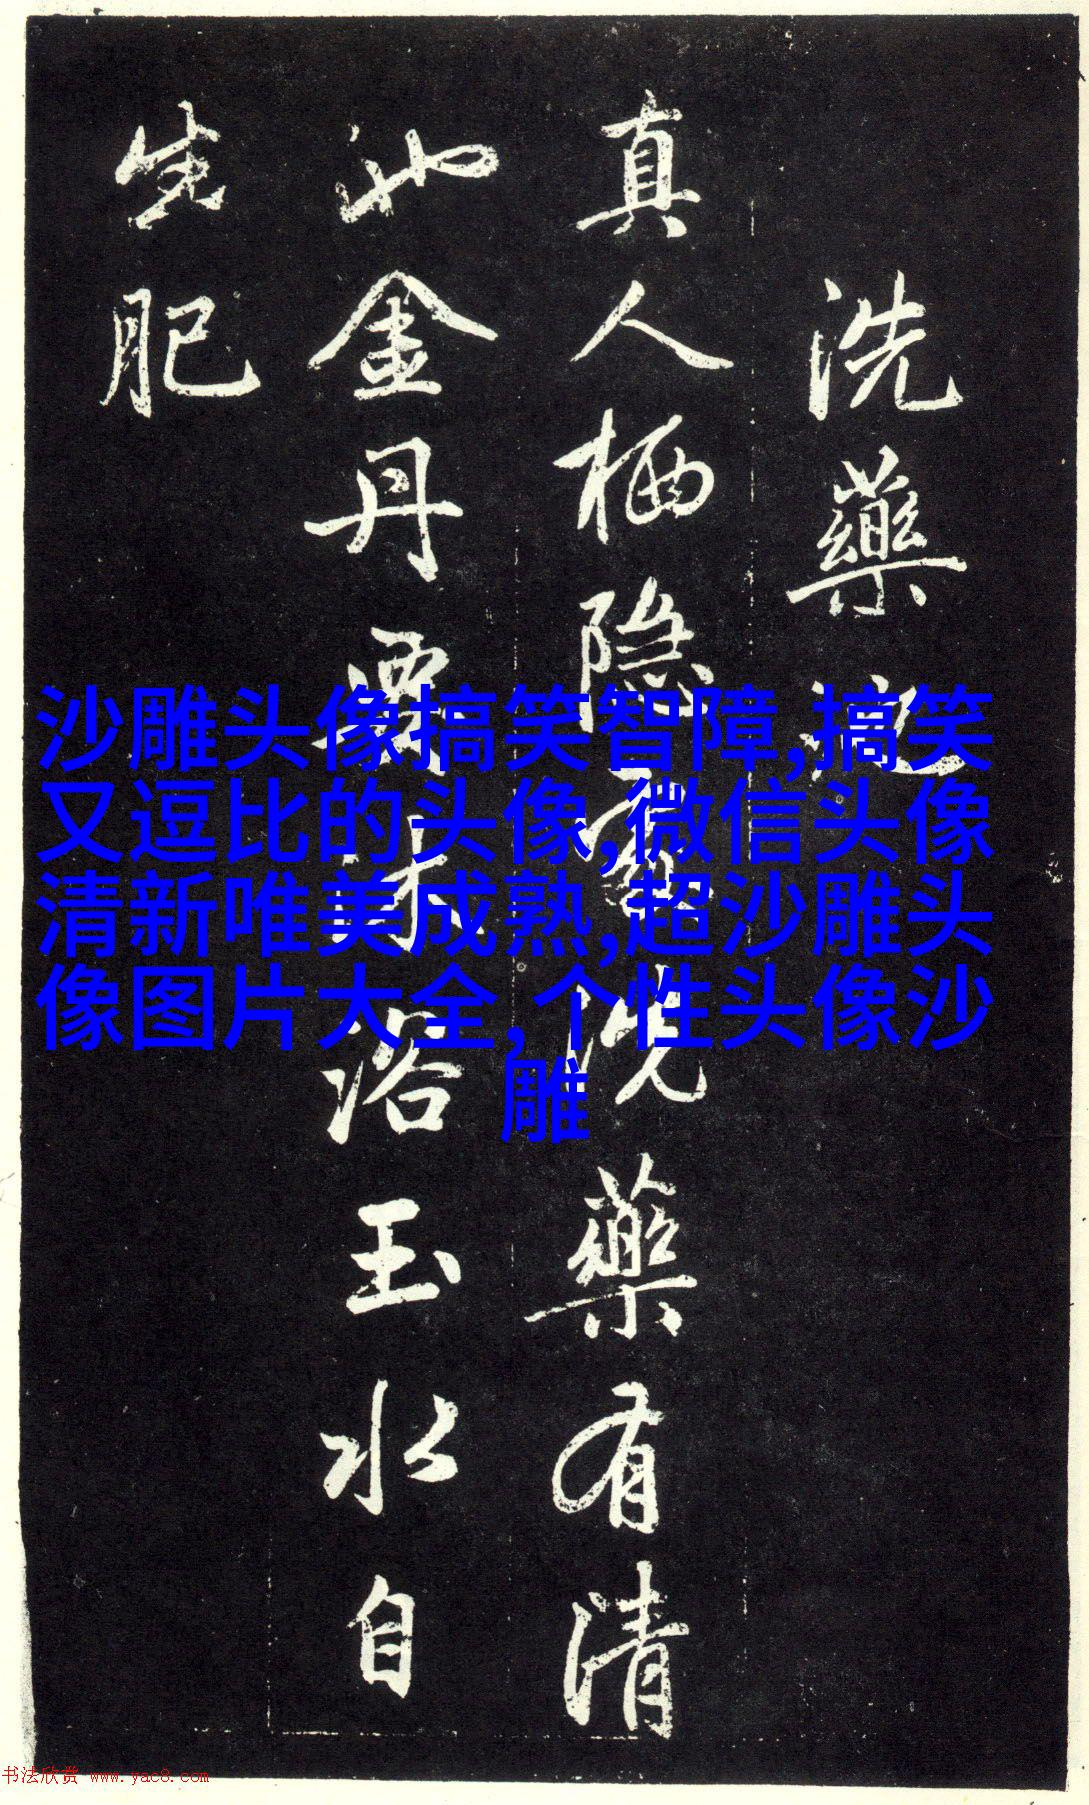 洗藥池
真人栖隐處洗藥有清
池金丹要沐浴玉水自
生肥
沙雕头像搞笑智障,搞笑
又逗比的头像,微信头像
清新唯美成熟,超沙雕头
像图片大全,个性头像沙
雕
书法欣赏 www.yac8.com